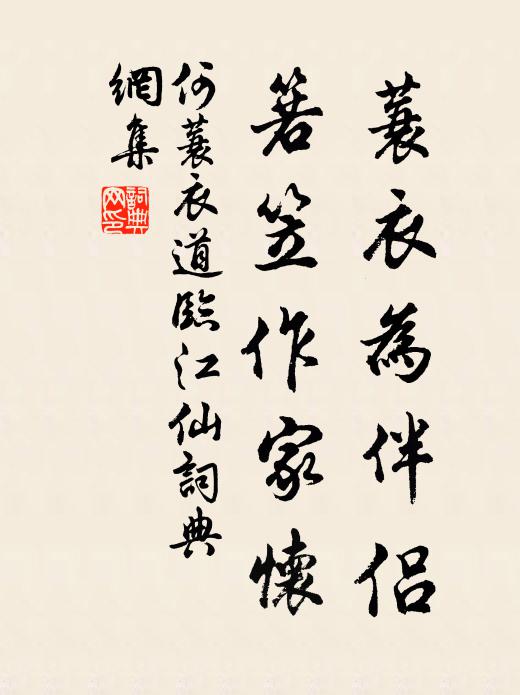 蓑衣為伴侣
箬笠作家懷
何蓑衣道臨江仙詞典
網集
詞典
网印